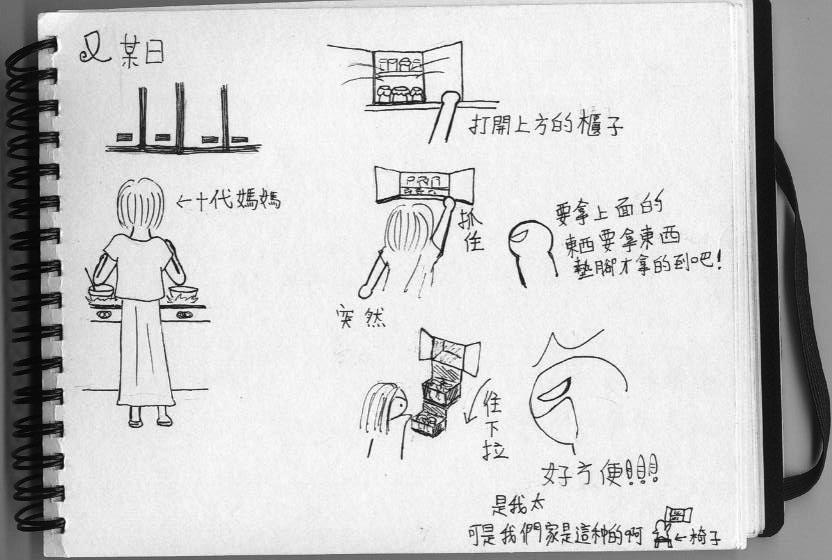 某日
←十代媽媽
打開上方的櫃子
抓住
要拿上面的
東西要拿東西
墊腳才拿的到吧!
突然
住下拉
好方便!!!
是我太
可是我們家是這种的啊 ←椅子